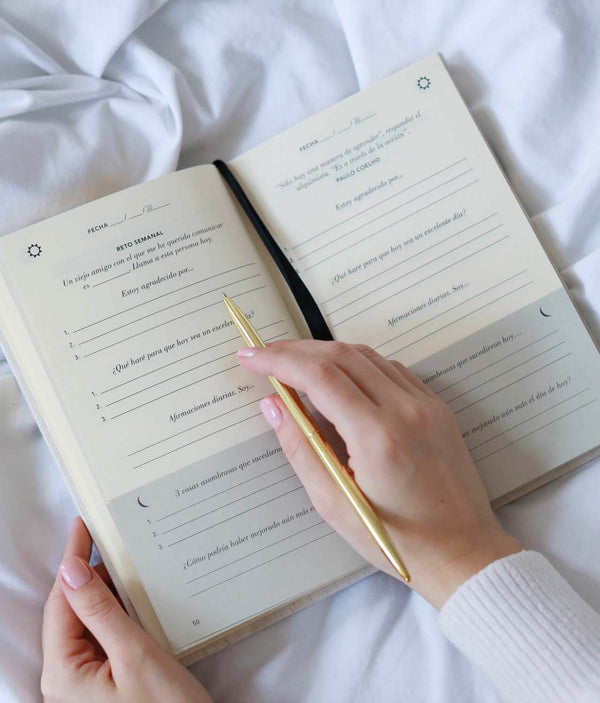 FECHA __/__/20__
RETO SEMANAL
Un viejo amigo con el que me he querido comunicar
es ______. Llama a esta persona hoy.
Estoy agradecido por...
1.
2.
3.
¿Qué haré para que hoy sea un excelente día?
1.
2.
3.
Afirmaciones diarias. Soy...
3 cosas asombrosas que sucedieron
1.
2.
3.
¿Cómo podría haber mejorado aún más e
50
FECHA __/__/20__
"Sólo hay una manera de aprender", respondió el
alquimista. "Es a través de la acción".
PAULO COELHO
Estoy agradecido por...
¿Qué haré para que hoy sea un excelente día?
Afirmaciones diarias. Soy...
asombrosas que sucedieron hoy...
haber mejorado aún más el día de hoy?